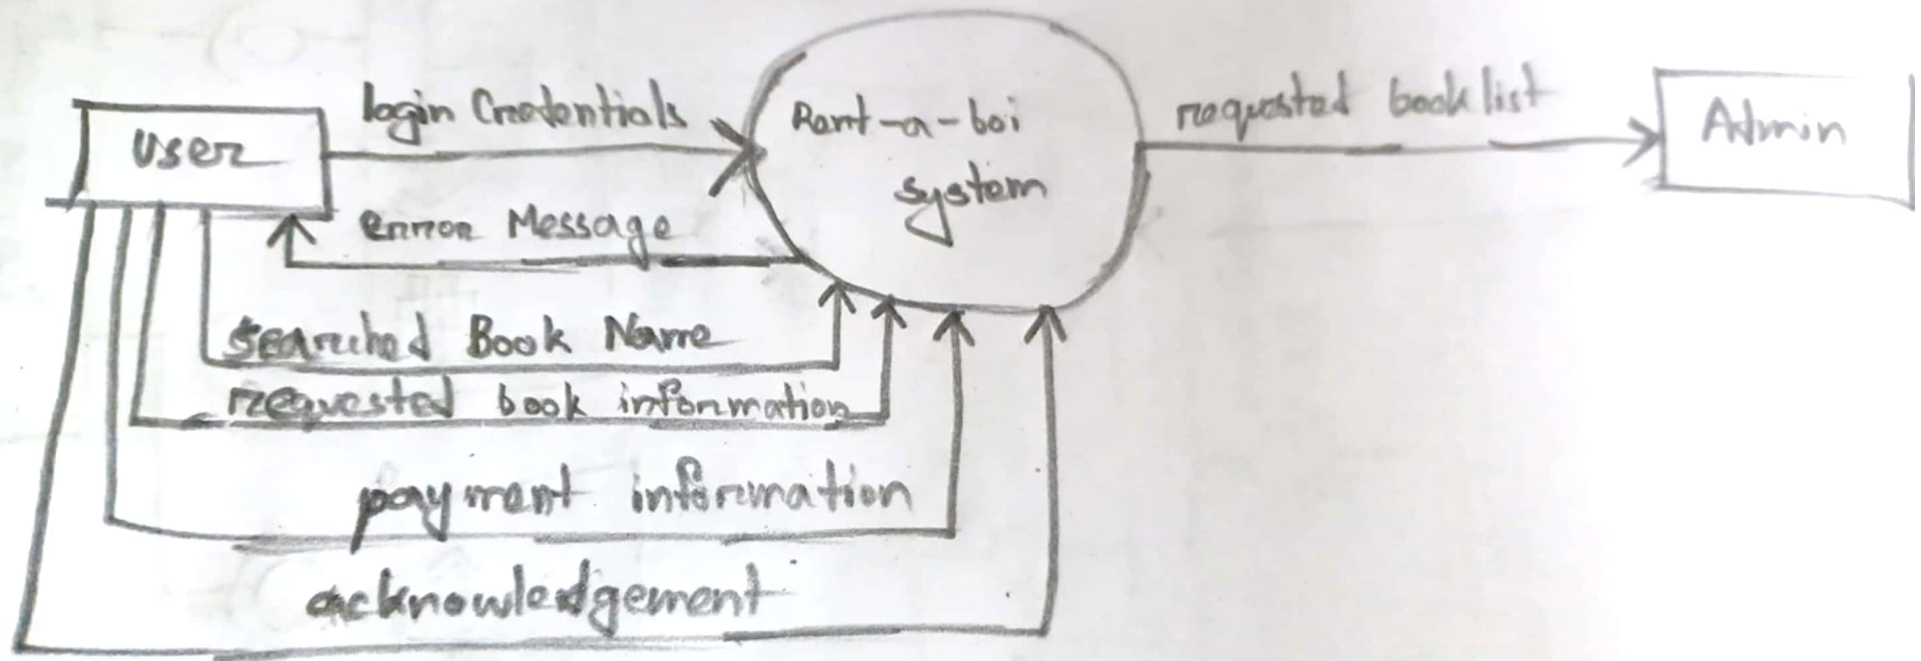 login Credentials
User
Rent-a-boi
system
requested book list
Admin
error Message
Searched Book Name
requested book information
payment information
acknowledgement